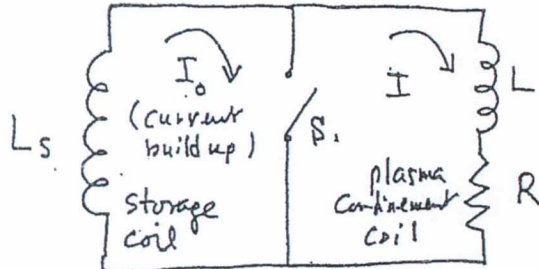 I₀
(current
build up)
Ls
storage
coil
S₁
I
L
plasma
confinement
coil
R